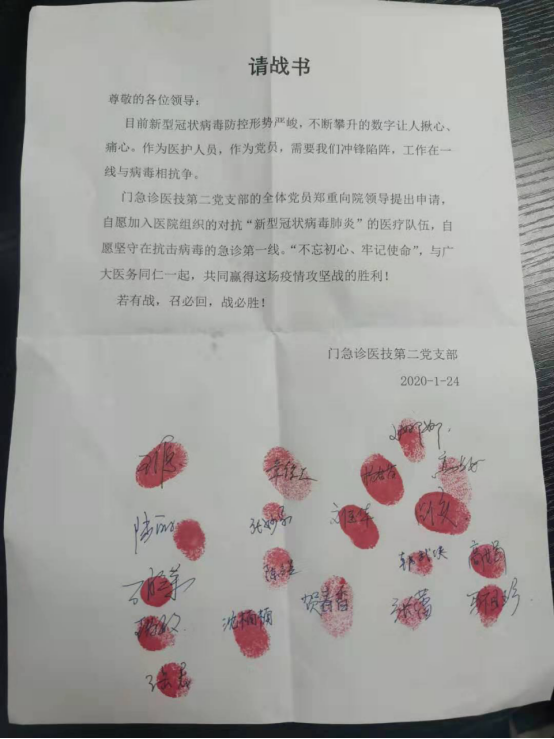 请战书
尊敬的各位领导：
目前新型冠状病毒防控形势严峻，不断攀升的数字让人揪心、
痛心。作为医护人员，作为党员，需要我们冲锋陷阵，工作在一
线与病毒相抗争。
门急诊医技第二党支部的全体党员郑重向院领导提出申请，
自愿加入医院组织的对抗“新型冠状病毒肺炎”的医疗队伍，自
愿坚守在抗击病毒的急诊第一线。“不忘初心、牢记使命”，与广
大医务同仁一起，共同赢得这场疫情攻坚战的胜利！
若有战，召必回，战必胜！
门急诊医技第二党支部
2020-1-24
贺春香